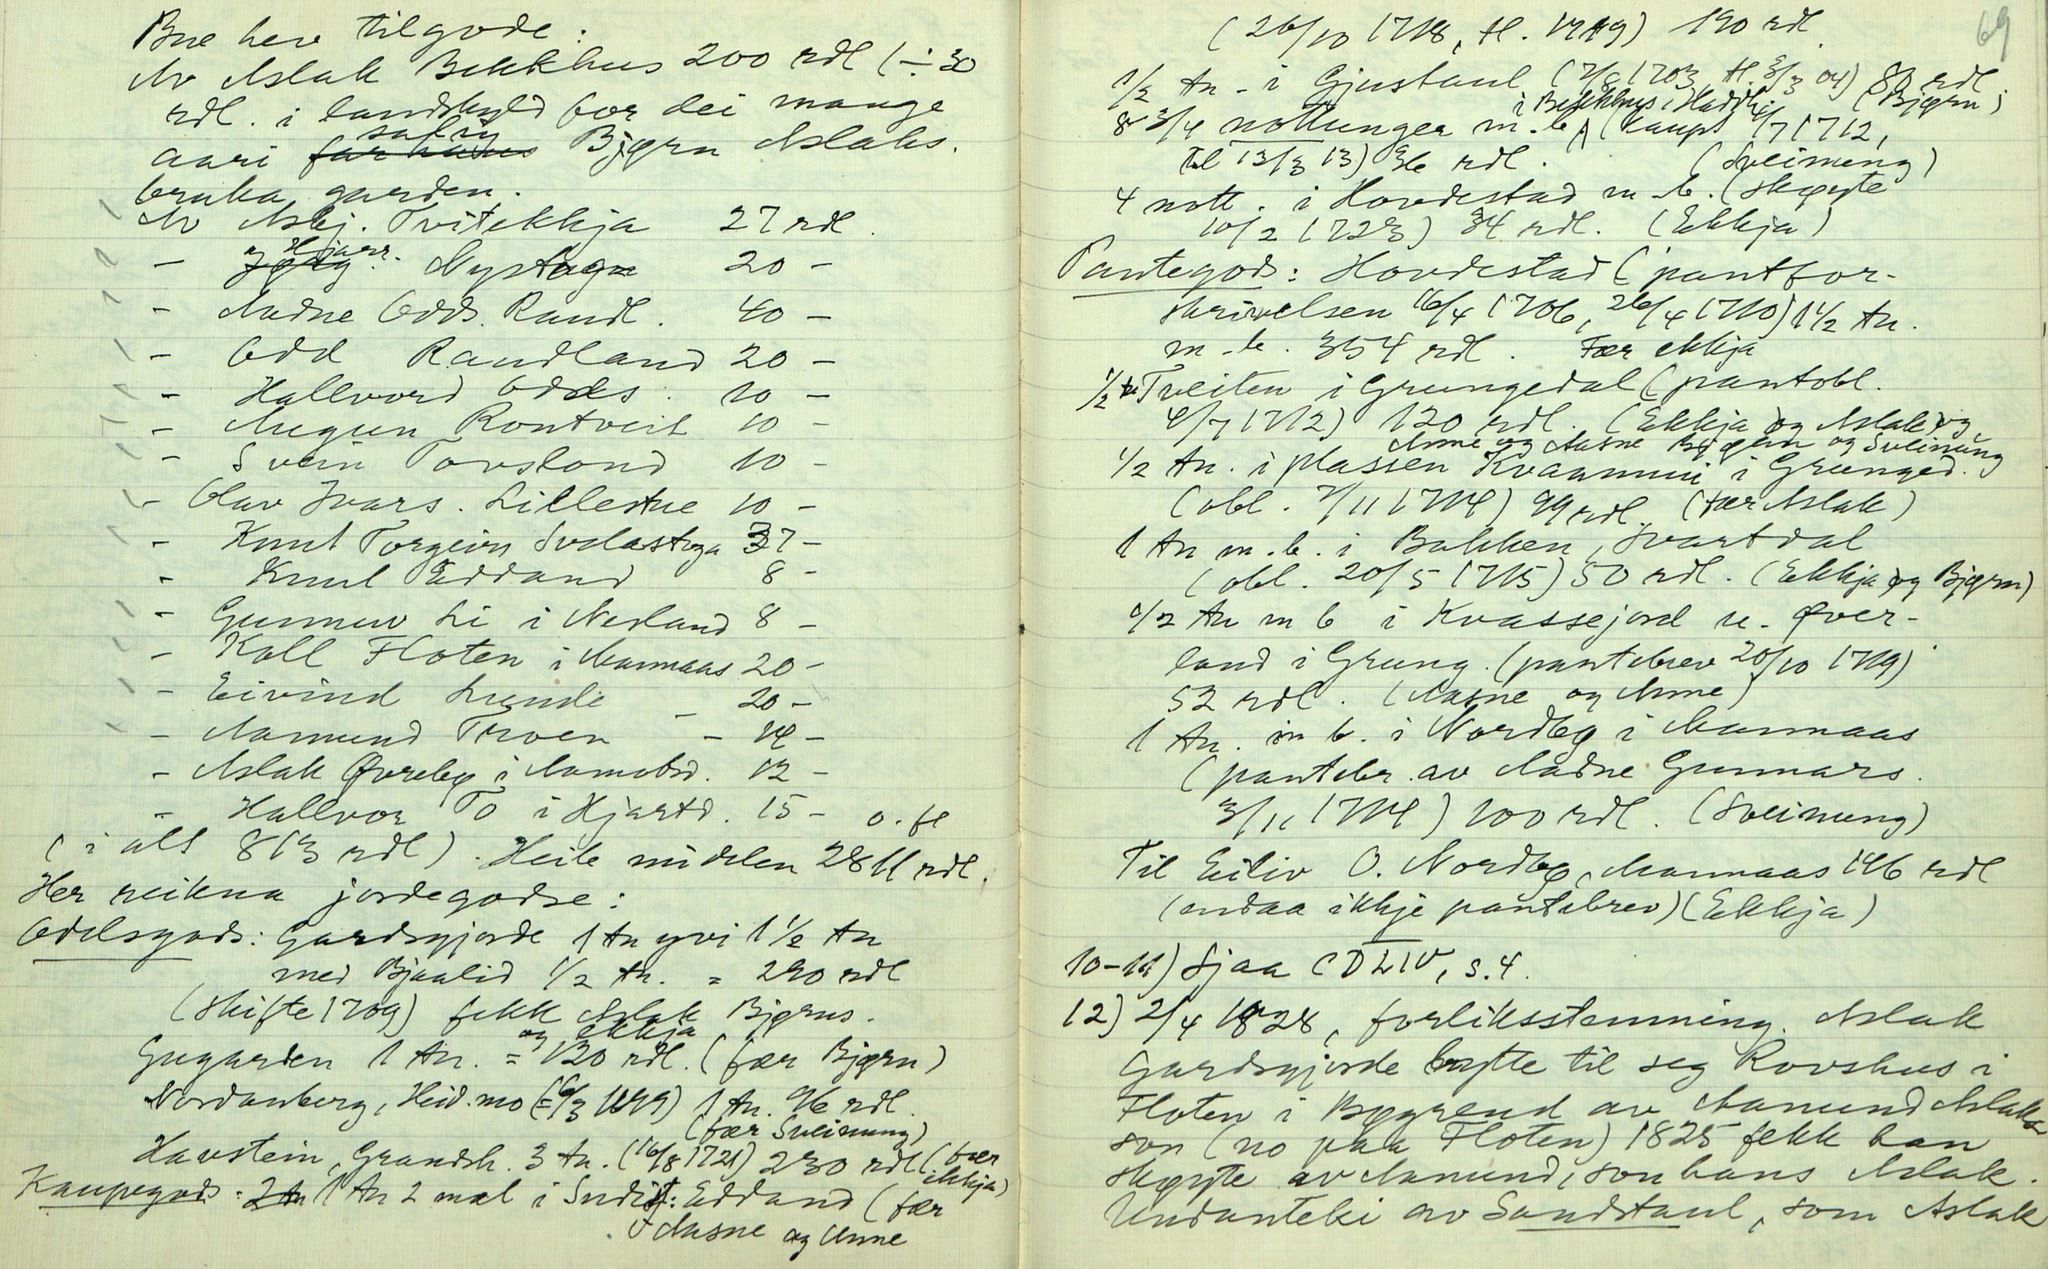 Bue hev tilgode:
Av Aslak Bekkhus 200 rdl (÷ 30
rdl. i landskyld for dei mange
aari salig Bjørn Aslaks.
bruka garden.
Av Asbj. Tvitekkja 27 rdl.
- Hjarr. Nystoga 20 -
- Aadne Odds. Randl. 40 -
- Odd Randland 20 -
- Hallvord Odds. 10 -
- Augun Rontveit 10 -
- Svein Tovsland 10 -
- Olav Ivars. Lillestue 10 -
- Knut Torgeirs Svalastoga 37 -
- Knut Edland 8 -
- Gunnuv Li i Nesland 8 -
- Koll Floten i Aamaas 20 -
- Eivind Lunde - 20 -
- Aamund Troen - 14 -
- Aslak Øvrebø i Aamotsd. 12 -
- Hallvor To i Hjartd. 15 - o. fl
(i alt 813 rdl). Heile midelen 2811 rdl.
Her reikna jordegodse:
Odelsgods: Gardsgjorde 1 tn yvi 1 1/2 tn
med Bjaalid 1/2 tn. = 290 rdl
(skifte 1709) fekk Aslak Bjørns.
og ekkja
Gugarden 1 tn. = 130 rdl. (fær Bjørn)
Nordanberg, Heid. mo (6/3 1699) 1 tn. 96 rdl.
(fær Sveinung)
Havstein, Gransh. 3 tn. (16/8 1721) 230 rdl (fær
ekkja)
Kaupegods: 1 tn 2 mæl i Sudist. Edland (fær
Aasne og Anne
69
(26/10 1718, tl. 1719) 190 rdl.
1/2 tn. i Gjustaul (7/8 1703 tl. 3/3 04) 80 rdl
i Bekkhus i Haddl. (Bjørn)
8 3/4 nottunger m. b. (kaupt 4/7 1712,
tl 13/3 13) 36 rdl. (Sveinung)
4 nott. i Hovdestad m. b. (skøyte
10/2 1723) 34 rdl. (Ekkja)
Pantegods: Hovdestad (pantfor-
skrivelsen 16/4 1706, 26/4 1710) 1 1/2 tn.
m. b. 354 rdl. Fær ekkja
1/2 tn Tveiten i Grungedal (pantobl.
4/7 1712) 120 rdl. (Ekkja og Aslak og
Anne og Aasne Bjørn og Sveinung
1/2 tn. i plassen Kvaammi i Grunged.
(obl. 7/11 1714) 99 rdl. (fær Aslak)
1 tn m. b. i Bakken, Svartdal
(obl. 20/5 1715) 50 rdl. (Ekkja og Bjørn)
1/2 tn m b i Kvassejord u. Øver-
land i Grung. (pantebrev 20/10 1719)
52 rdl. (Aasne og Anne)
1 tn. m b. i Nordbø i Aamaas
(pantebr. av Aadne Gunnars.
3/11 1714) 100 rdl. (Sveinung)
Til Eiliv O. Nordbø, Aamaas 146 rdl
(endaa ikkje pantebrev) (Ekkja)
10-11) Sjaa CDLIV, s. 4.
12) 2/4 1828, forliksstemning. Aslak
Gardsgjorde bytte til seg Rovshus i
Floten i Bøgrend av Aamund Aslak-
son (no paa Floten) 1825 fekk han
skøyte av Aamund, son hans Aslak.
Undanteki av Sandstaul, som Aslak